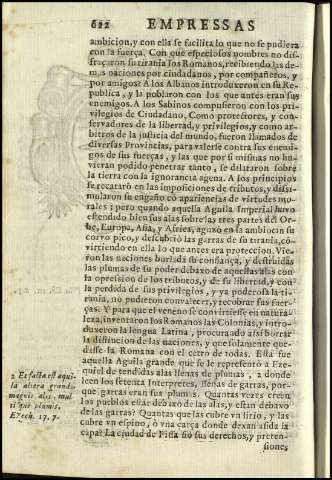 622 EMPRESSAS
ambicion, y con ella se facilita lo que no se pudiera
con la fuerça. Con què especiosos nombres no dis-
fraçaron su tirania los Romanos, recibiendo las de-
mas naciones por ciudadanos, por compañeros, y
por amigos? A los Albanos introduxeron en su Re-
publica, y la poblaron con los que antes eran sus
enemigos. A los Sabinos compusieron con los pri-
vilegios de Ciudadano, Como protectores, y con-
servadores de la libertad, y privilegios, y como ar-
bitros de la justicia del mundo, fueron llamados de
diversas Provincias, para valerse contra sus enemi-
gos de sus fuerças, y las que por si mismas no hu-
vieran podido penetrar tanto, se dilataron sobre
la tierra con la ignorancia agena. A los principios
se recatarõ en las imposiciones de tributos, y dissi-
mularon su engaño cõ apariencias de virtudes mo-
rales: pero quando aquella Aguila Imperial huvo
estendido bien sus alas sobre las tres partes del Or-
be, Europa, Asia, y Africa, aguzò en la ambiciõ su
corvo pico, y descubriò las garras de su tirania, cõ-
virtiendo en ella lo que antes era proteccion. Vie-
ron las naciones burlada su confiança, y destruidas
las plumas de su poder debaxo de aquellas alas con
la opresion de los tributos, y de su libertad, y con
la perdida de sus privilegios, y ya poderosa la ti-
rania, no pudieron convalecer, y recobrar sus fuer-
ças. Y para que el veneno se convirtiesse en natura-
leza, inventaron los Romanos las Colonias, y intro-
duxeron la lengua Latina, procurado assi borrar
la distincion de las naciones, y que solamente que-
dasse la Romana con el cetro de todas. Esta fue
aquella Aguila grande que se le representò a Eze-
quiel de tendidas alas llenas de plumas, a donde
leen los setenta Interpretes, llenas de garras, por-
que garras eran sus plumas. Quantas vezes creen
los pueblos estàr debaxo de las alas, y estàn debaxo
de las garras? Quantas que las cubre vn lirio, y las
cubre vn espino, ò vna çarça donde dexan asida la
capa? La ciudad de Pisa fiò sus derechos, y preten-
siones
2 Et facta est aqui-
la altera grandis
magnis alis, mul-
tisque plumis.
Ezech. 17. 7.